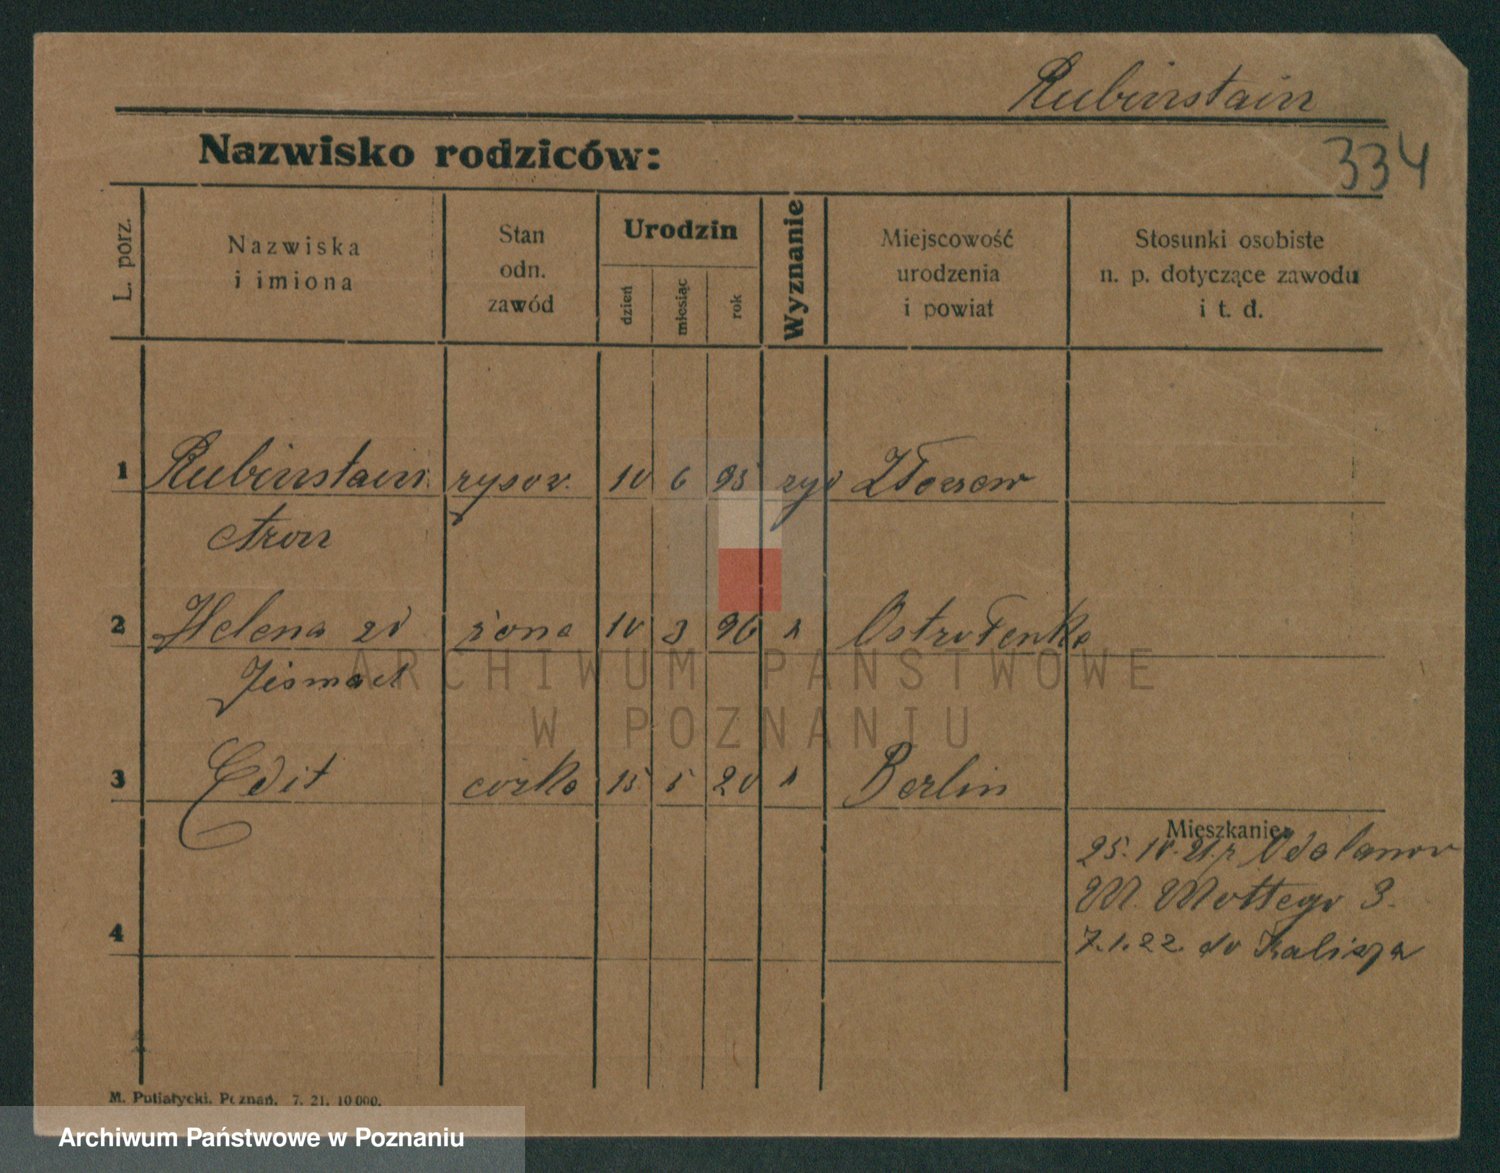 Rubinstain
334
Nazwisko rodziców:
L. porz.
Nazwiska
i imiona
Stan
odn.
zawód
Urodzin
dzień
miesiąc
rok
Wyznanie
Miejscowość
urodzenia
i powiat
Stosunki osobiste
n. p. dotyczące zawodu
i t. d.
1 Rubinstain rysow. 10 6 95 żyd Złoczow
Aron
2 Helena żona 10 3 96 Ostrołenka
ARCHIWUM PAŃSTWOWE
W POZNANIU
3 Edit corka 15 5 20 Berlin
Mieszkanie:
25. 10. 21. Odolanow
M. Mottego 3.
4
7.1.22. do Kalisza
M. Putiatycki, Poznań. 7. 21. 10000.
Archiwum Państwowe w Poznaniu